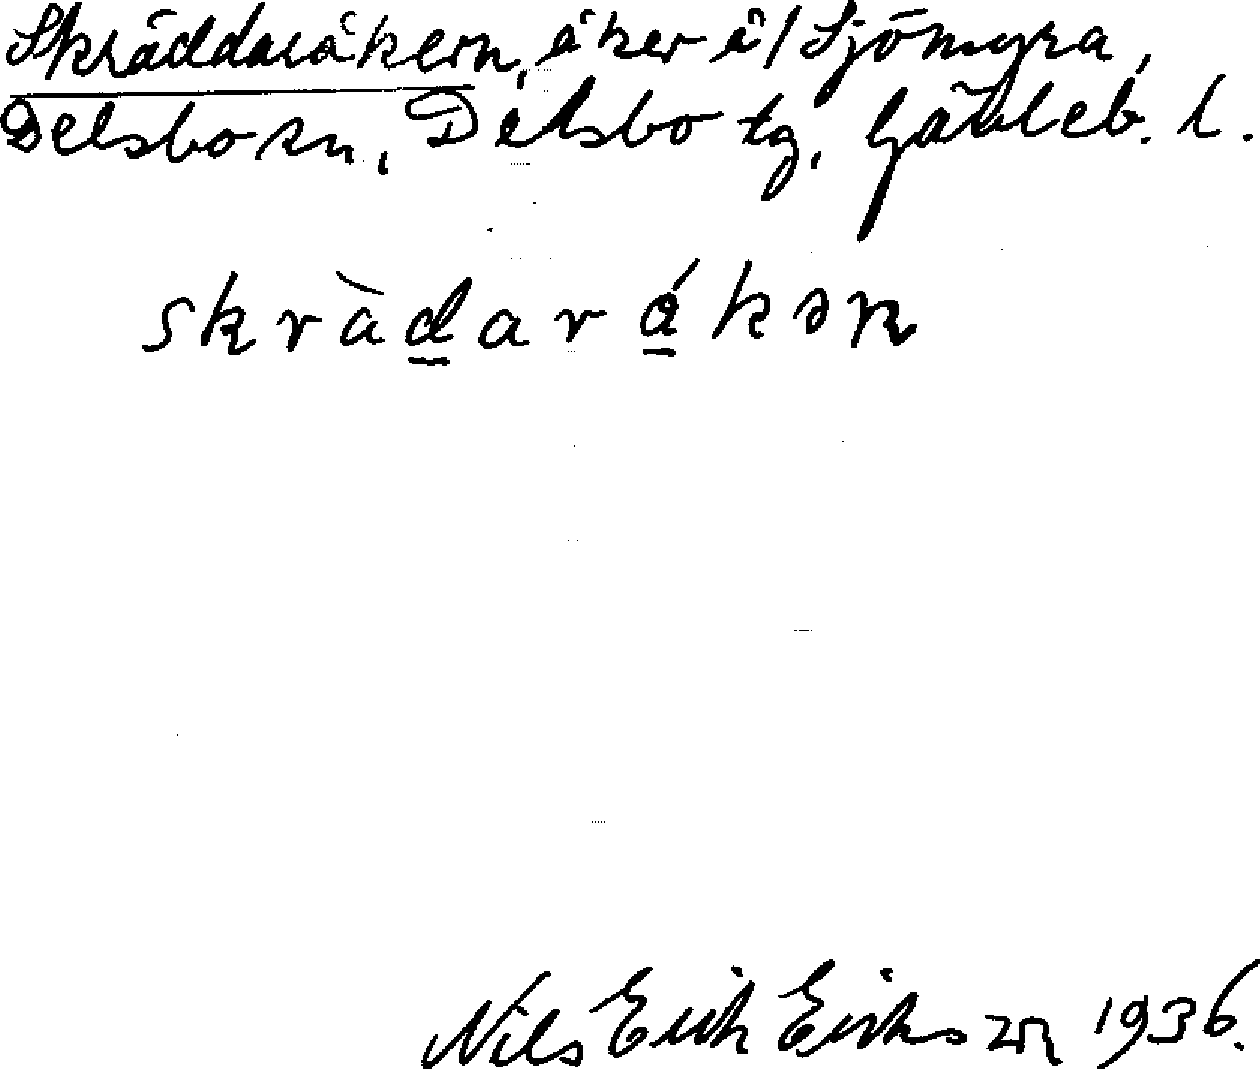 Skräddaråkern, åker å/ Sjömyra,
Delsbo sn, Delsbo tg, Gävleb. l.
skràd̲ará̲kən
Nils Erik Erikson 1936.